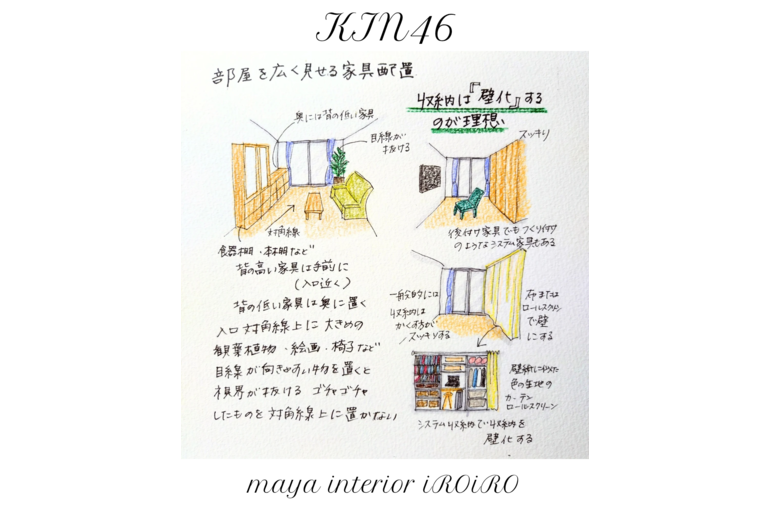 KIN46
部屋を広く見せる家具配置
奥には背の低い家具
目線が
抜ける
対角線
食器棚・本棚など
背の高い家具は手前に
(入口近く)
背の低い家具は奥に置く
入口対角線上に大きめの
観葉植物・絵画・椅子など
目線が向きやすい物を置くと
視界が抜ける ゴチャゴチャ
したものを対角線上に置かない
収納は『壁化』する
のが理想
スッキリ
後付け家具でもつくり付け
のようなシステム家具もある
一般的には
収納は
かくす方が
スッキリする
布または
ロールスクリーン
で壁
にする
壁紙に似た
色の生地の
カーテン
ロールスクリーン
システム収納で収納を
壁化する
maya interior iROiRO